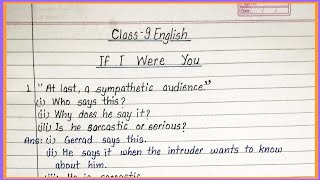 Class-9 English
If I Were You
1. "At last, a sympathetic audience."
(i) Who says this?
(ii) Why does he say it?
(iii) Is he sarcastic or serious?
Ans: (i) Gerrad says this.
(ii) He says it when the intruder wants to know
about him.
(iii) He is sarcastic.